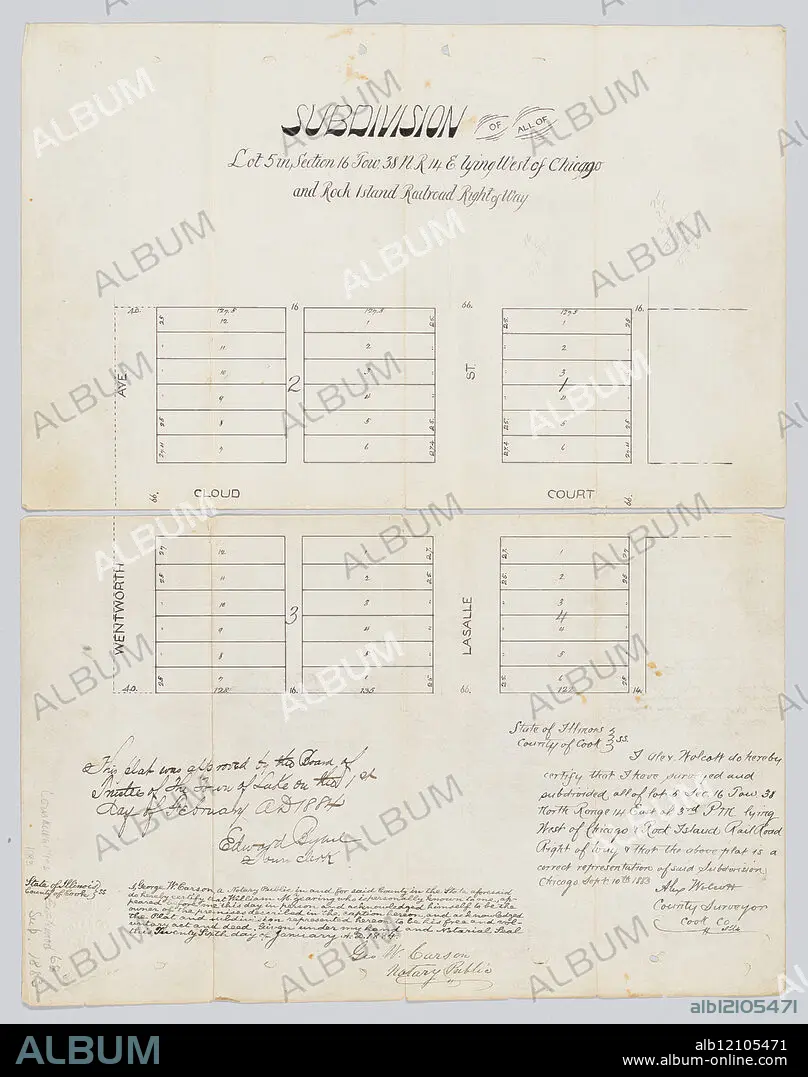 SUBDIVISION OF ALL OF
Lot 5 in Section 16 Tow. 38 N. R 14 E lying West of Chicago
and Rock Island Railroad Right of Way
40. 127.5 16 127.5 66. 127.5 16.
25 12 1 25. 25. 1 25.
11 2 2
AVE 10 2 3 ST. 3 1
9 4 4
25 8 5 25. 25. 5 25
27.4 7 6 27.4 27.4 6 27.4
66. CLOUD COURT 66.
27 12 1 27. 27. 1 27
25 11 2 25. 25. 2 25.
WENTWORTH 10 3 3 LASALLE 3 4
9 4 4
8 5 5
40. 25 7 128 16. 6 135 25. 66. 25. 6 122 25. 14.
This plat was approved by the Board of
Trustees of the Town of Lake on the 1st
day of February A.D 1884
Edward
Town Clerk
State of Illinois
County of Cook } ss.
I Alex Wolcott do hereby
certify that I have surveyed and
subdivided all of lot 5 Sec. 16 Tow 38
North Range 14 East of 3rd P.M. lying
West of Chicago & Rock Island Rail Road
Right of Way & that the above plat is a
correct representation of said Subdivision
Chicago Sept 10th 1883
Alex Wolcott
County Surveyor
Cook Co
Ills
State of Illinois
County of Cook } ss
I, George W. Carson, a Notary Public, in and for said County in the State aforesaid
do hereby certify that William M. Gearing who is personally known to me, ap-
peared before me this day in person and acknowledged himself to be the
owner of the premises described in the caption hereon, and acknowledged
the Plat and subdivision represented hereon to be his free and vol-
untary act and deed. Given under my hand and Notarial Seal
this Twenty Sixth day of January A.D. 1884
Geo W. Carson
Notary Public
ALBUM
alb12105471
ALBUM
alb12105471
www.album-online.com